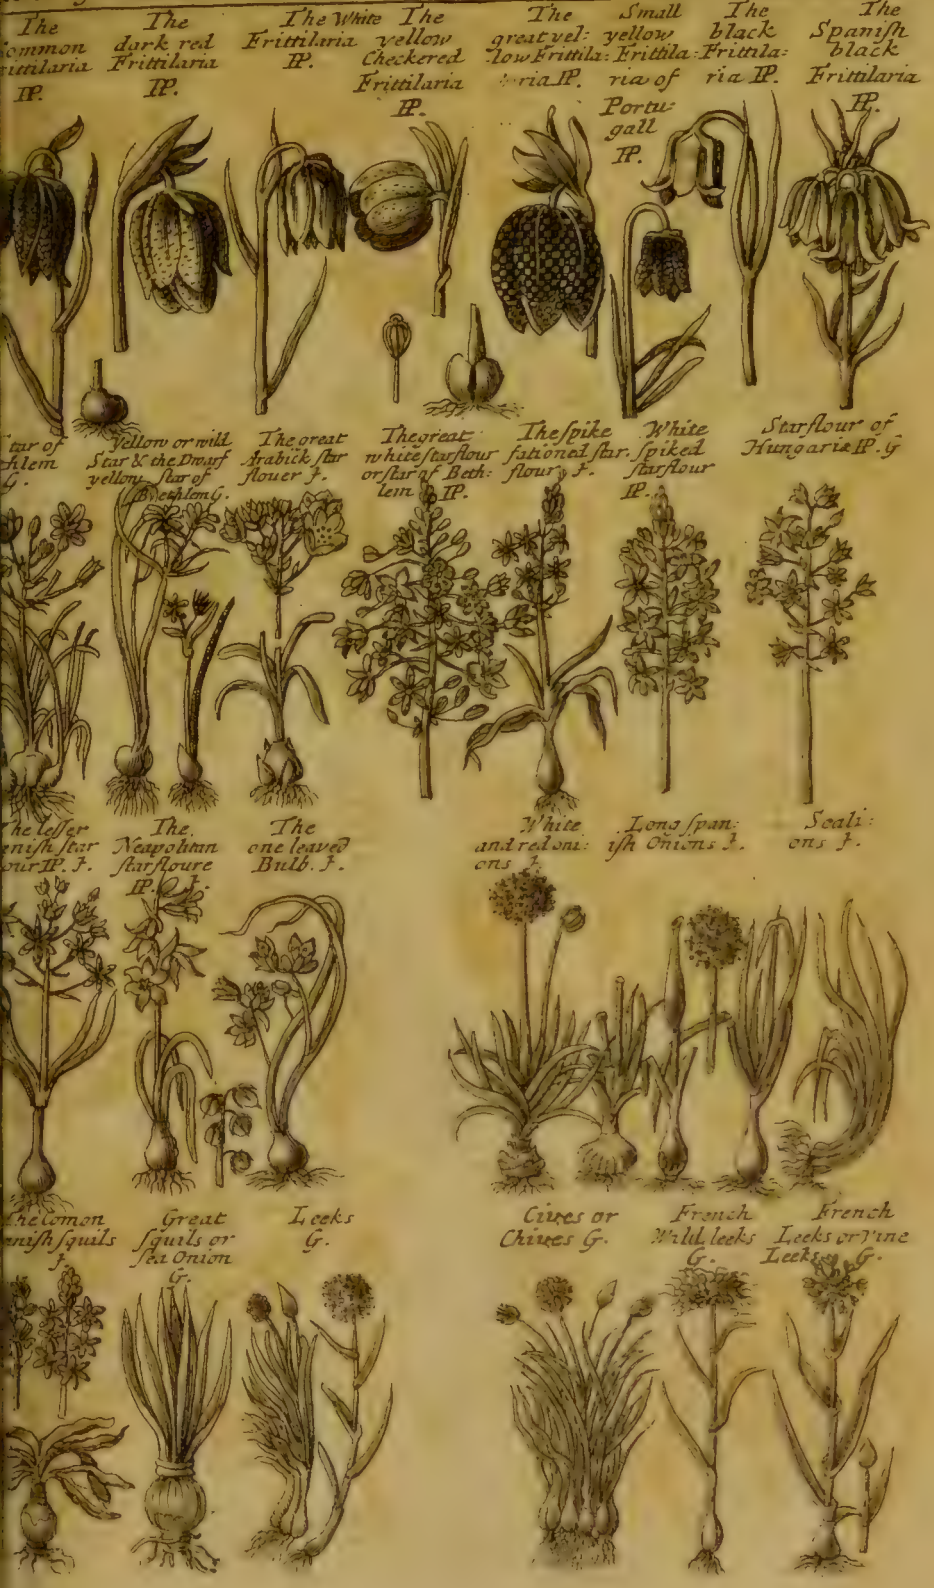 The
ommon
rittilaria
IP.
The
dark red
Frittilaria
IP.
The White
Frittilaria
IP.
The
yellow
Checkered
Frittilaria
IP.
The
great yel:
low Frittila:
ria IP.
Small
yellow
Frittila:
ria of
Portu:
gall
IP.
The
black
Frittila:
ria IP.
The
Spaniſh
black
Frittilaria
IP.
tar of
thlem
G.
Yellow or wild
Star & the Dwarf
yellow ſtar of
Bethlem G.
The great
Arabick ſtar
flouer J.
The great
white ſtarflour
or ſtar of Beth:
lem IP.
The ſpike
faſtioned ſtar.
flour J.
White
ſpiked
ſtarflour
IP.
Starflour of
Hungaria IP. G
The leſſer
eniſh ſtar
our IP. J.
The
Neapolitan
ſtarfloure
IP. J.
The
one leaved
Bulb. J.
White
and red oni:
ons J.
Long ſpan:
iſh Onions J.
Scali:
ons J.
The Comon
eniſh ſquils
J.
Great
ſquils or
ſea Onion
G.
Leeks
G.
Cives or
Chives G.
French
Wild leeks
G.
French
Leeks or Vine
Leeks G.